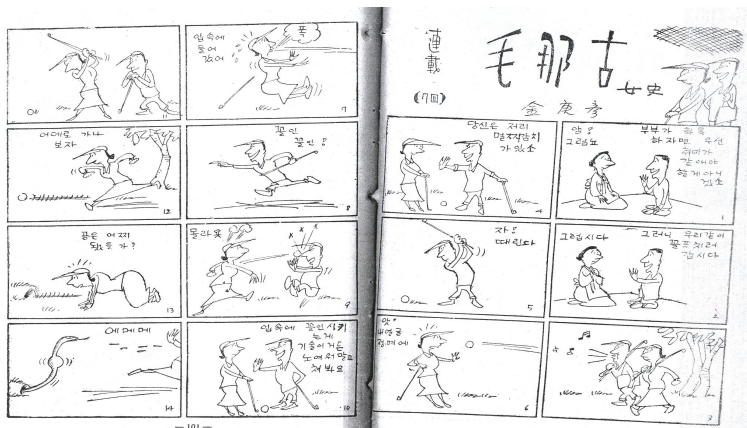 連載
毛那古
女史
(7回)
金庚彦
암!
그럼요
부부가 화목
하자면 우선
취미가
같애야
할게 아니
겠소
1
그럽시다
그러니 우리같이
꼴프치러
갑시다
2
3
당신은 저리
가있소
4
자!
때린다
5
앗!
내얼굴
정면에
6
입속에
들어
갔어
폭
7
꼴인
꼴인!
8
몰라욧
9
입속에 꼴인 시키
는게
기술이거든
노여워말고
쳐봐요
10
11
어데로 가나
보자
12
꼴은 어찌
됐을가?
13
에메메
14
— 101 —